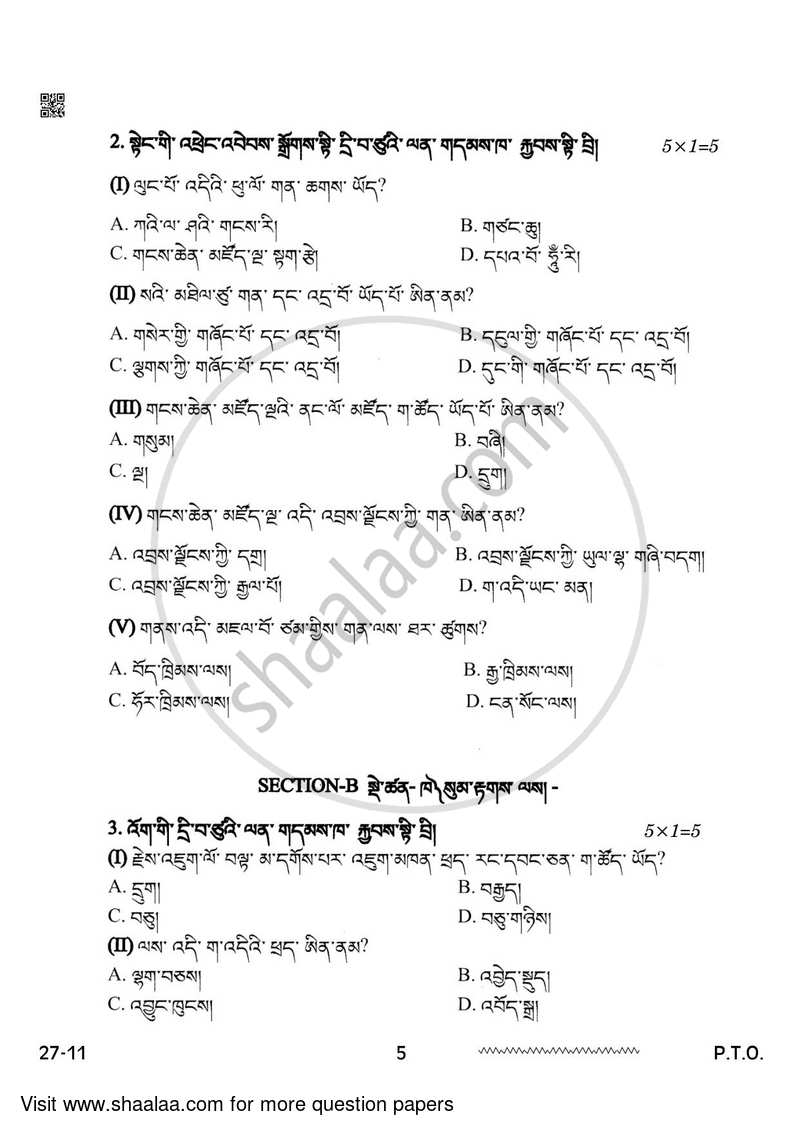 2. སྟེང་གི་ འཕྲེང་འབེབས་ སྒྲོགས་སྟེ་ དྲི་བ་ཙུའི་ ལན་ གདམས་ཁ་ རྐྱབས་སྟེ་ བྲི། 5×1=5
(I) ལུང་པོ་ འདིའི་ ཕུ་ལོ་ གན་ ཆགས་ ཡོད?
A. ཀའི་ལ་ ཤའི་ གངས་རི། B. གཙང་ཆུ།
C. གངས་ཆེན་ མཛོད་ལྔ་ སྟག་རྩེ། D. དཔའ་བོ་ ཧཱུྃ་རི།
(II) སའི་ མཐིལ་ཙུ་ གན་ དང་ འདྲ་བོ་ ཡོད་པོ་ ཨིན་ནམ?
A. གསེར་གྱི་ གཞོང་པོ་ དང་ འདྲ་བོ། B. དངུལ་གྱི་ གཞོང་པོ་ དང་ འདྲ་བོ།
C. ལྕགས་ཀྱི་ གཞོང་པོ་ དང་ འདྲ་བོ། D. དུང་གི་ གཞོང་པོ་ དང་ འདྲ་བོ།
(III) གངས་ཆེན་ མཛོད་ལྔའི་ ནང་ལོ་ མཛོད་ ག་ཚོད་ ཡོད་པོ་ ཨིན་ནམ?
A. གསུམ། B. བཞི།
C. ལྔ། D. དྲུག།
(IV) གངས་ཆེན་ མཛོད་ལྔ་ འདི་ འབྲས་ལྗོངས་ཀྱི་ གན་ ཨིན་ནམ?
A. འབྲས་ལྗོངས་ཀྱི་ དགྲ། B. འབྲས་ལྗོངས་ཀྱི་ ཡུལ་ལྷ་ གཞི་བདག།
C. འབྲས་ལྗོངས་ཀྱི་ རྒྱལ་པོ། D. ག་འདི་ཡང་ མན།
(V) གནས་འདི་ མཇལ་བོ་ ཙམ་གྱིས་ གན་ལས་ ཐར་ ཚུགས?
A. བོད་ཁྲིམས་ལས། B. རྒྱ་ཁྲིམས་ལས།
C. ཧོར་ཁྲིམས་ལས། D. ངན་སོང་ལས།
SECTION-B སྡེ་ཚན- ཁ༽ སུམ་རྟགས་ ལས། -
3. འོག་གི་ དྲི་བ་ཙུའི་ ལན་ གདམས་ཁ་ རྐྱབས་སྟེ་ བྲི། 5×1=5
(I) རྗེས་འཇུག་ལོ་ བལྟ་ མ་དགོས་པར་ འཇུག་མཁན་ ཕྲད་ རང་དབང་ཅན་ ག་ཚོད་ ཡོད?
A. དྲུག། B. བརྒྱད།
C. བཅུ། D. བཅུ་གཉིས།
(II) ལས་ འདི་ ག་འདིའི་ ཕྲད་ ཨིན་ནམ?
A. ལྷག་བཅས། B. འབྱེད་སྡུད།
C. འབྱུང་ཁུངས། D. འབོད་སྒྲ།
27-11 5 P.T.O.
Visit www.shaalaa.com for more question papers
shaalaa.com